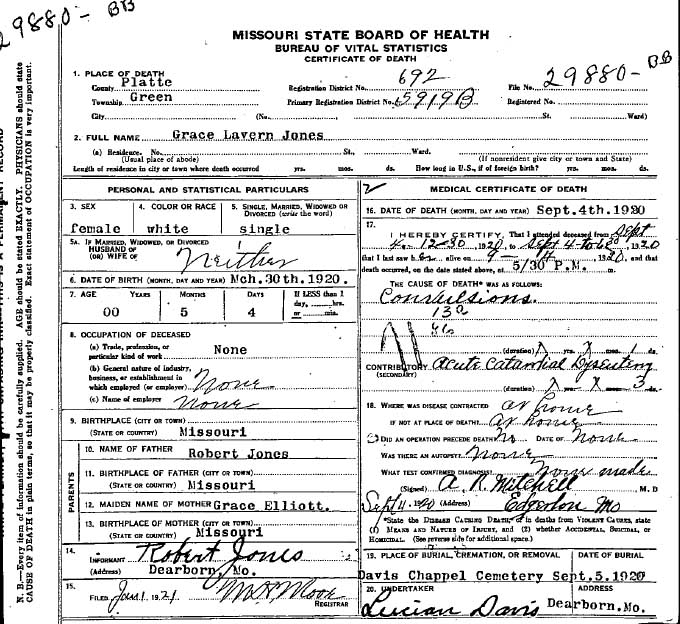 29880- BB
MISSOURI STATE BOARD OF HEALTH
BUREAU OF VITAL STATISTICS
CERTIFICATE OF DEATH
1. PLACE OF DEATH
County Platte Registration District No. 692 File No. 29880- BB
Township Green Primary Registration District No. 5919B Registered No.
City (No. St. Ward)
2. FULL NAME Grace Lavern Jones
(a) Residence. No. St., Ward.
(Usual place of abode) (If nonresident give city or town and State)
Length of residence in city or town where death occurred yrs. mos. ds. How long in U.S., if of foreign birth? yrs. mos. ds.
PERSONAL AND STATISTICAL PARTICULARS
3. SEX 4. COLOR OR RACE 5. SINGLE, MARRIED, WIDOWED OR DIVORCED (write the word)
female white single
5A. IF MARRIED, WIDOWED, OR DIVORCED
HUSBAND OF
(OR) WIFE OF Neither
6. DATE OF BIRTH (MONTH, DAY AND YEAR) Mch.30th.1920.
7. AGE YEARS MONTHS DAYS If LESS than 1 day, hrs. or min.
00 5 4
8. OCCUPATION OF DECEASED
(a) Trade, profession, or particular kind of work None
(b) General nature of industry, business, or establishment in which employed (or employer) None
(c) Name of employer None
9. BIRTHPLACE (CITY OR TOWN)
(STATE OR COUNTRY) Missouri
PARENTS
10. NAME OF FATHER Robert Jones
11. BIRTHPLACE OF FATHER (CITY OR TOWN)
(STATE OR COUNTRY) Missouri
12. MAIDEN NAME OF MOTHER Grace Elliott.
13. BIRTHPLACE OF MOTHER (CITY OR TOWN)
(STATE OR COUNTRY) Missouri
14. INFORMANT Robert Jones
(Address) Dearborn, Mo.
15. FILED Jan 1 1921 REGISTRAR
2 MEDICAL CERTIFICATE OF DEATH
16. DATE OF DEATH (MONTH, DAY AND YEAR) Sept.4th.1920
17. I HEREBY CERTIFY, That I attended deceased from Sept
4 12-30 1920, to Sept 4-to 6 30 1920
that I last saw her alive on 9- 4 1920, and that
death occurred, on the date stated above, at 5/30 P.M. m.
THE CAUSE OF DEATH* WAS AS FOLLOWS:
Convulsions.
(duration) yrs. mos. 1 ds.
CONTRIBUTORY Acute Catarrhal Dysentery
(SECONDARY)
(duration) yrs. mos. 3 ds.
18. WHERE WAS DISEASE CONTRACTED at home
IF NOT AT PLACE OF DEATH? at home
DID AN OPERATION PRECEDE DEATH? no DATE OF None
WAS THERE AN AUTOPSY? None
WHAT TEST CONFIRMED DIAGNOSIS? None made
(Signed) A. R. Mitchell M. D
Sept 11 1920 Edgerton Mo
*State the DISEASE CAUSING DEATH, or in deaths from VIOLENT CAUSES, state
(1) MEANS AND NATURE OF INJURY, and (2) whether ACCIDENTAL, SUICIDAL, or
HOMICIDAL. (See reverse side for additional space.)
19. PLACE OF BURIAL, CREMATION, OR REMOVAL DATE OF BURIAL
Davis Chappel Cemetery Sept.5.1920
20. UNDERTAKER ADDRESS
Lucian Davis Dearborn.Mo.
N. B.—Every item of information should be carefully supplied. AGE should be stated EXACTLY. PHYSICIANS should state
CAUSE OF DEATH in plain terms, so that it may be properly classified. Exact statement of OCCUPATION is very important.